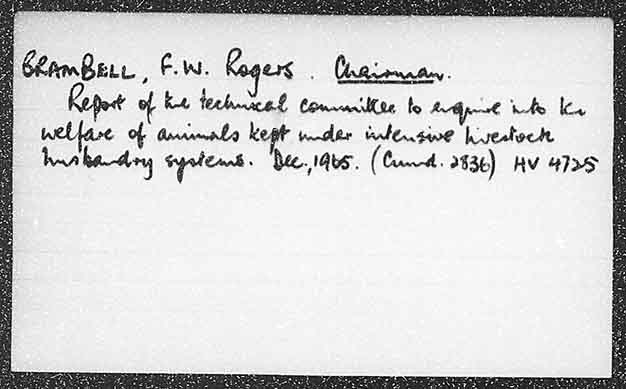 BRAMBELL, F.W. Rogers. Chairman.
Report of the technical committee to enquire into the
welfare of animals kept under intensive livestock
husbandry systems. Dec., 1965. (Cmnd. 2836) HV 4725